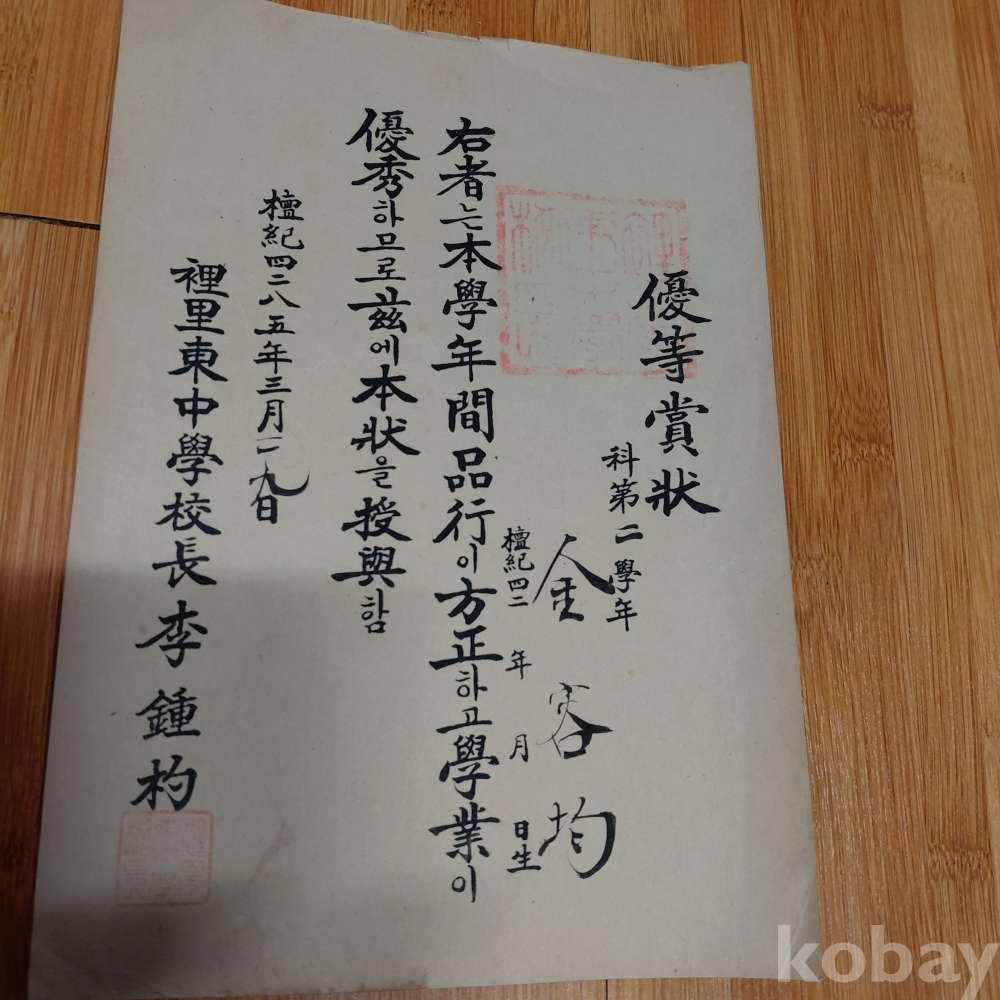 優等賞狀
科第二學年
金容均
檀紀四二 年 月 日生
右者는本學年間品行이方正하고學業이
優秀하므로玆에本狀을授與함
檀紀四二八五年三月二九日
裡里東中學校長李鍾杓
kobay